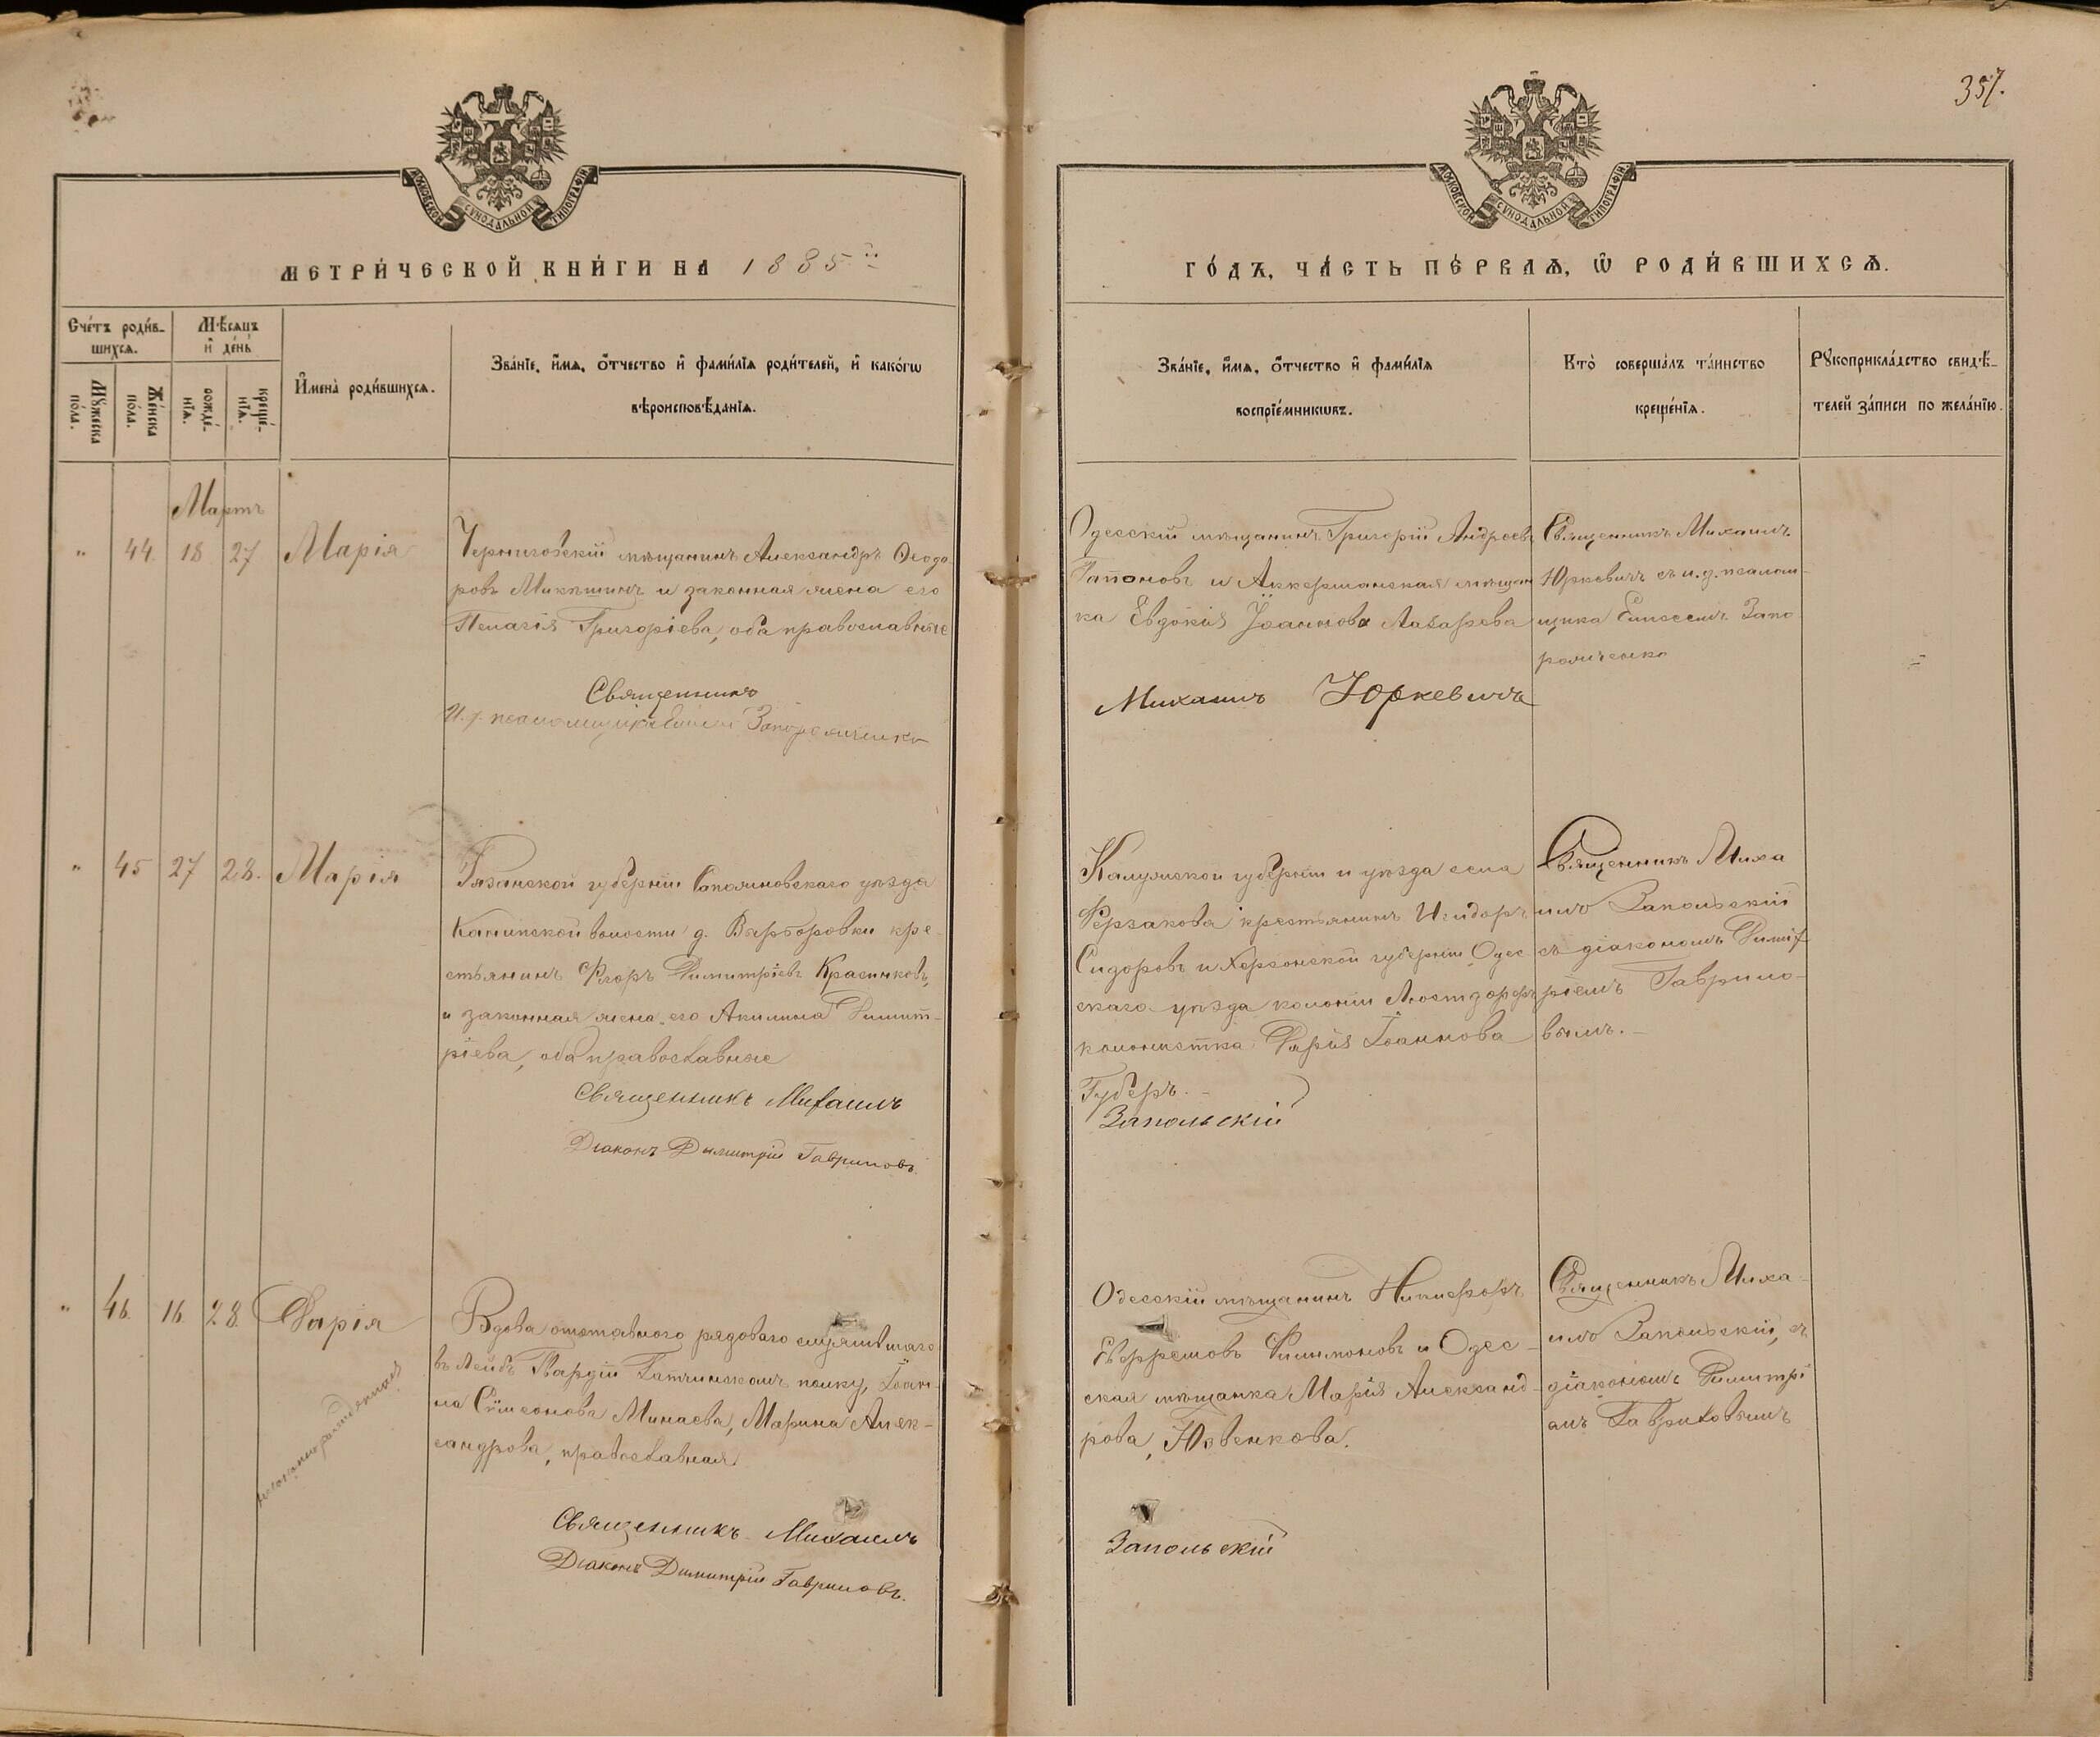 357.
МОСКОВСКОЙ СУНОДАЛЬНОЙ ТИПОГРАФІИ
МОСКОВСКОЙ СУНОДАЛЬНОЙ ТИПОГРАФІИ
МЕТРИ́ЧЕСКОЙ КНИ́ГИ НА 1885й
ГО́ДЪ, ЧА́СТЬ ПЕ́РВАѦ, Ѿ РОДИ́ВШИХСѦ.
Сче́тъ роди́в-
шихсѧ.
Мꙋ́жеска
по́ла.
Же́нска
по́ла.
Мѣ́сѧцъ
и҆ де́нь
рожде́-
нїѧ.
креще́-
нїѧ.
И҆мена̀ роди́вшихсѧ.
Зва́нїе, и҆́мѧ, ѻ҆́тчество и҆ фами́лїѧ роди́телей, и҆ како́гѡ
вѣроисповѣ́данїѧ.
Зва́нїе, и҆́мѧ, ѻ҆́тчество и҆ фами́лїѧ
воспрїе́мникѡвъ.
Кто̀ соверша́лъ та́инство
креще́нїѧ.
Рꙋкоприкла́дство свидѣ́-
телей за́писи по жела́нїю.
Мартъ
" 44. 18 27 Марія
Черниговскій мѣщанинъ Александръ Ѳеодо-
ровъ Микитинъ и законная жена его
Пелагія Григоріева, оба православные
Священникъ
И. д. псаломщика Елисей Запорожченко
Одесскій мѣщанинъ Григорій Андреевъ
Гапоновъ и Аккерманская мѣщан
ка Евдокія Іоаннова Лазарева
Михаилъ Юркевичъ
Священникъ Михаилъ
Юркевичъ съ и. д. псалом-
щика Елисеемъ Запо
рожченко
" 45 27 28. Марія
Рязанской губерніи Сапожковскаго уѣзда
волости д. кре-
стьянинъ Ѳеодоръ Димитріевъ Красниковъ,
и законная жена его Акилина Димит-
ріева, оба православные
Священникъ Михаилъ
Діаконъ Димитрій Гавриловъ.
Калужской губерніи и уѣзда села
Ферзакова крестьянинъ Исидоръ
Сидоровъ и Херсонской губерніи Одес-
скаго уѣзда колоніи Люстдорфъ
колонистка Дарія Іоаннова
Губеръ. –
Запольскій
Священникъ Миха
илъ Запольскій
съ діакономъ Димит
ріемъ Гаврило-
вымъ. –
" 46. 16. 28. Дарія
незаконнорожденная
Вдова отставного рядоваго служившаго
въ Лейбъ Гвардіи Гатчинскомъ полку, Іоан-
на Сѵмеонова Минаева, Марина Алек-
сандрова, православная.
Священникъ Михаилъ
Діаконъ Димитрій Гавриловъ.
Одесскій мѣщанинъ Никифоръ
Евфремовъ Филимоновъ и Одес-
ская мѣщанка Марія Александ-
рова Ювенкова.
Запольскій
Священникъ Миха-
илъ Запольскій, съ
діакономъ Димитрі
емъ Гавриловымъ